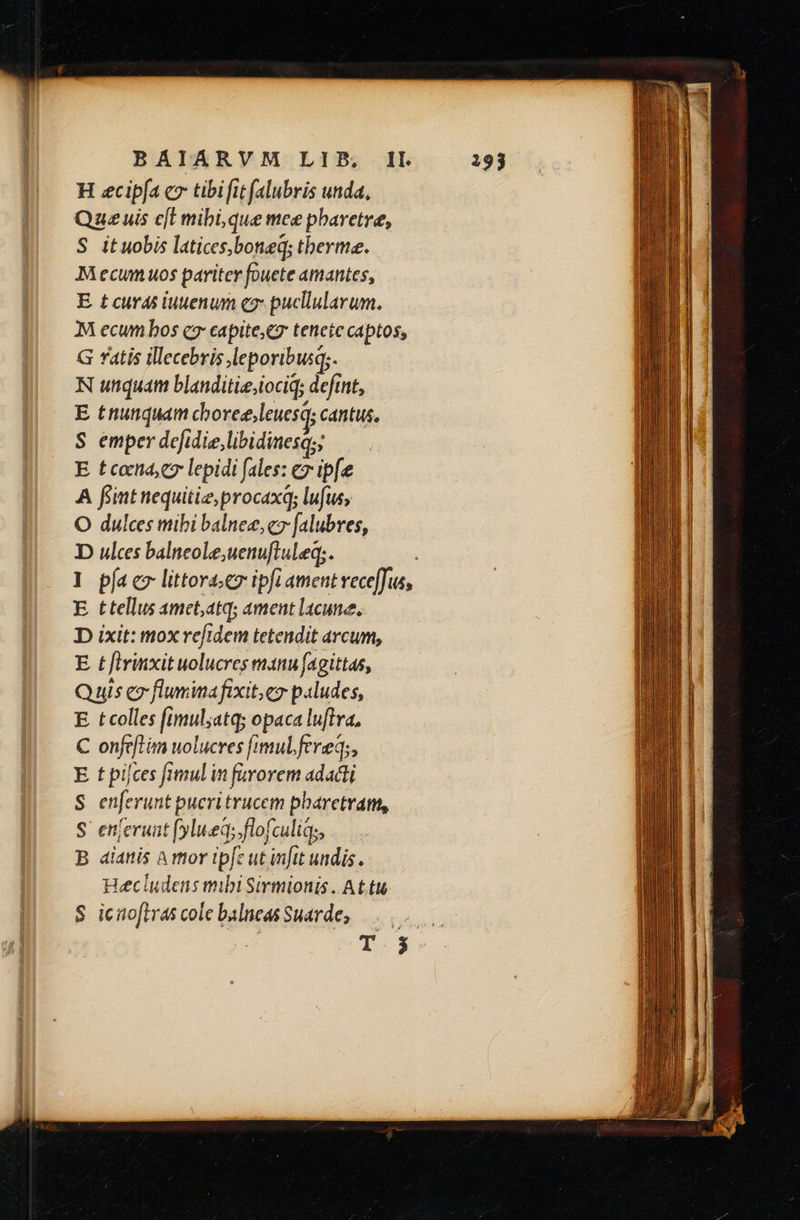 BAIARVM LIB. II. 293
H æcipſa & tibi ſit ſalubris unda,
Quæ uis eſt mihi, quæ meæ pharetræ,
S it uobis latices, bonæq; thermæ.
M ecum uos pariter fouete amantes,
E t curas iuuenum & puellularum.
M ecum hos & capite, & tenete captos,
G ratis illecebris, leporibusq;.
N unquam blanditiæ, iociq; deſint,
E t nunquam choreæ, leuesq; cantus.
S emper deſidiæ, libidinesq;,
E t cœna, & lepidi ſales: & ipſæ
A ſſint nequitiæ, procaxq; luſus,
O dulces mihi balneæ, & ſalubres,
D ulces balneolæ, uenuſtulæq;.
I pſa & littora, & ipſi ament receſſus,
E t tellus amet, atq; ament lacunæ.
D ixit: mox reſidem tetendit arcum,
E t ſtrinxit uolucres manu ſagittas,
Quis & flumina fixit, & paludes,
E t colles ſimul, atq; opaca luſtra.
C onfeſtim uolucres ſimul, feræq;,
E t piſces ſimul in furorem adacti
S enſerunt pueri trucem pharetram,
S enſerunt ſyluæq;, floſculiq;,
B aianis Amor ipſe ut inſit undis.
Hæc ludens mihi Sirmionis. At tu
S ic noſtras cole balneas Suarde,
T 3